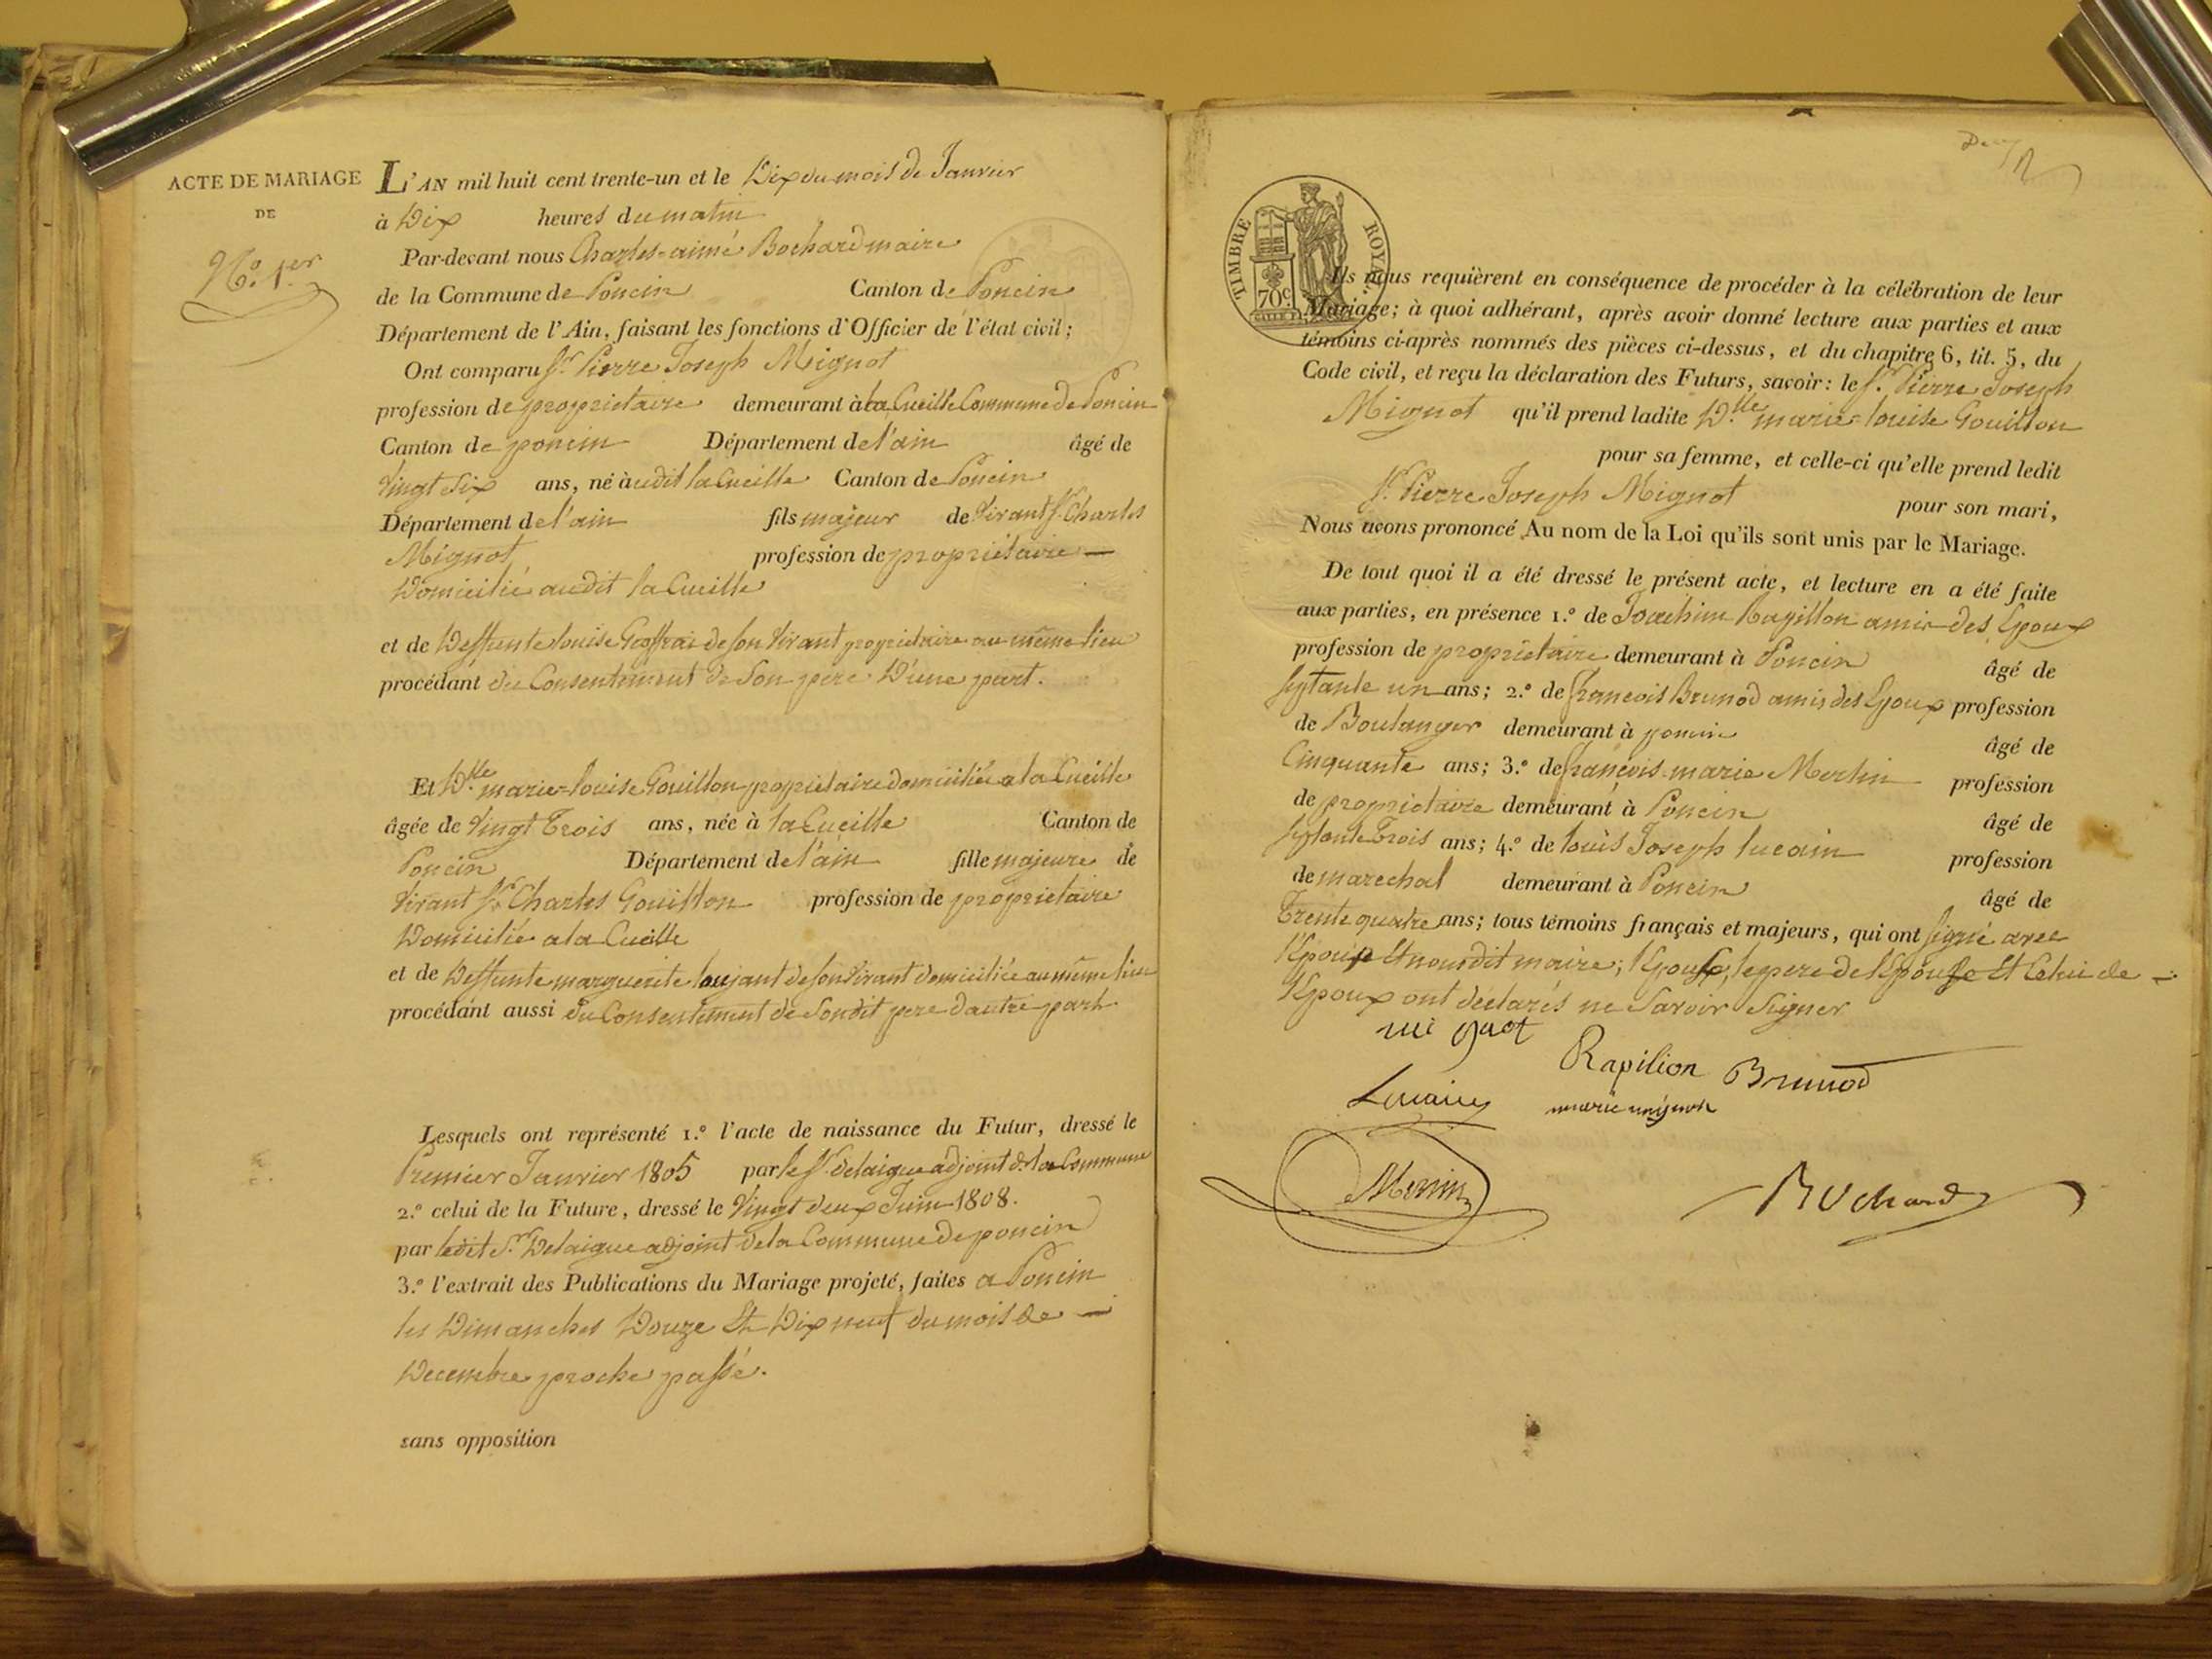 ACTE DE MARIAGE
DE
N.º 1.er
L'AN mil huit cent trente-un et le Dix du mois de Janvier
à Dix heures du matin
Par-devant nous Charles-aimé Bochard maire
de la Commune de Poncin Canton de Poncin
Département de l'Ain, faisant les fonctions d'Officier de l'état civil;
Ont comparu Sr. Pierre Joseph Mignot
profession de propriétaire demeurant à la Cueille Commune de Poncin
Canton de poncin Département de l'ain âgé de
vingt Six ans, né àudit la Cueille Canton de Poncin
Département de l'ain fils majeur de vivant Sr. Charles
Mignot profession de propriétaire —
Domicilié audit la Cueille
et de Deffunte louise Geoffrai de son vivant propriétaire au même lieu
procédant du Consentement de Son pere D'une part.
Et Dlle. marie-louise Gouillon propriétaire domiciliée a la Cueille
âgée de vingt Trois ans, née à la Cueille Canton de
Poncin Département de l'ain fille majeure de
vivant Sr. Charles Gouillon profession de propriétaire
Domicilié a la Cueille
et de Deffunte marguerite de son vivant domiciliée au même lieu
procédant aussi du Consentement de Sondit pere d'autre part
Lesquels ont représenté 1.º l'acte de naissance du Futur, dressé le
Premier Janvier 1805 par le Sr. Delaigue adjoint de la Commune
2.º celui de la Future, dressé le vingt deux Juin 1808.
par ledit Sr. Delaigue adjoint de la Commune de poncin
3.º l'extrait des Publications du Mariage projeté, faites a Poncin
les Dimanches Douze Et Dix neuf du mois de —
Decembre proche passé.
sans opposition
TIMBRE ROYAL
70c
Ils nous requièrent en conséquence de procéder à la célébration de leur
Mariage; à quoi adhérant, après avoir donné lecture aux parties et aux
témoins ci-après nommés des pièces ci-dessus, et du chapitre 6, tit. 5, du
Code civil, et reçu la déclaration des Futurs, savoir: le Sr. Pierre Joseph
Mignot qu'il prend ladite Dlle. marie-louise Gouillon
pour sa femme, et celle-ci qu'elle prend ledit
Sr. Pierre Joseph Mignot pour son mari,
Nous avons prononcé Au nom de la Loi qu'ils sont unis par le Mariage.
De tout quoi il a été dressé le présent acte, et lecture en a été faite
aux parties, en présence 1.º de Joachim Rapillon amis des Epoux
profession de propriétaire demeurant à Poncin âgé de
Septante un ans; 2.º de françois Brunod amis des Epoux profession
de Boulanger demeurant à poncin âgé de
Cinquante ans; 3.º de françois-marie Merlin profession
de propriétaire demeurant à Poncin âgé de
Septante Trois ans; 4.º de louis Joseph lucain profession
de marechal demeurant à Poncin âgé de
Trente quatre ans; tous témoins français et majeurs, qui ont signé avec
l'Epoux Et nous dit maire; l'Epouse, le pere de l'Epouse Et Celui de —
l'Epoux ont déclarés ne Savoir Signer
mi gnot
Rapilion Brunod
Lucain marie mignot
Merlin
Bochard